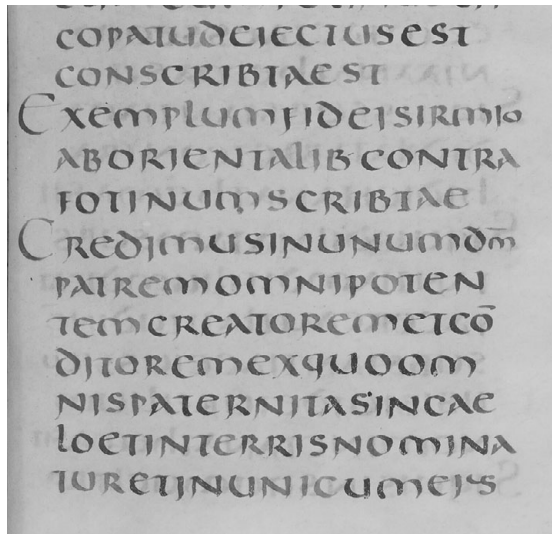 COPATUDEIECTUSEST
CONSCRIBTAEST
EXEMPLUMFIDEISIRMIO
ABORIENTALIBCONTRA
FOTINUMSCRIBTAE
CREDIMUSINUNUMDM̅
PATREMOMNIPOTEN
TEMCREATOREMETCO̅
DITOREMEXQUOOM
NISPATERNITASINCAE
LOETINTERRISNOMINA
TURETINUNICUMEIUS